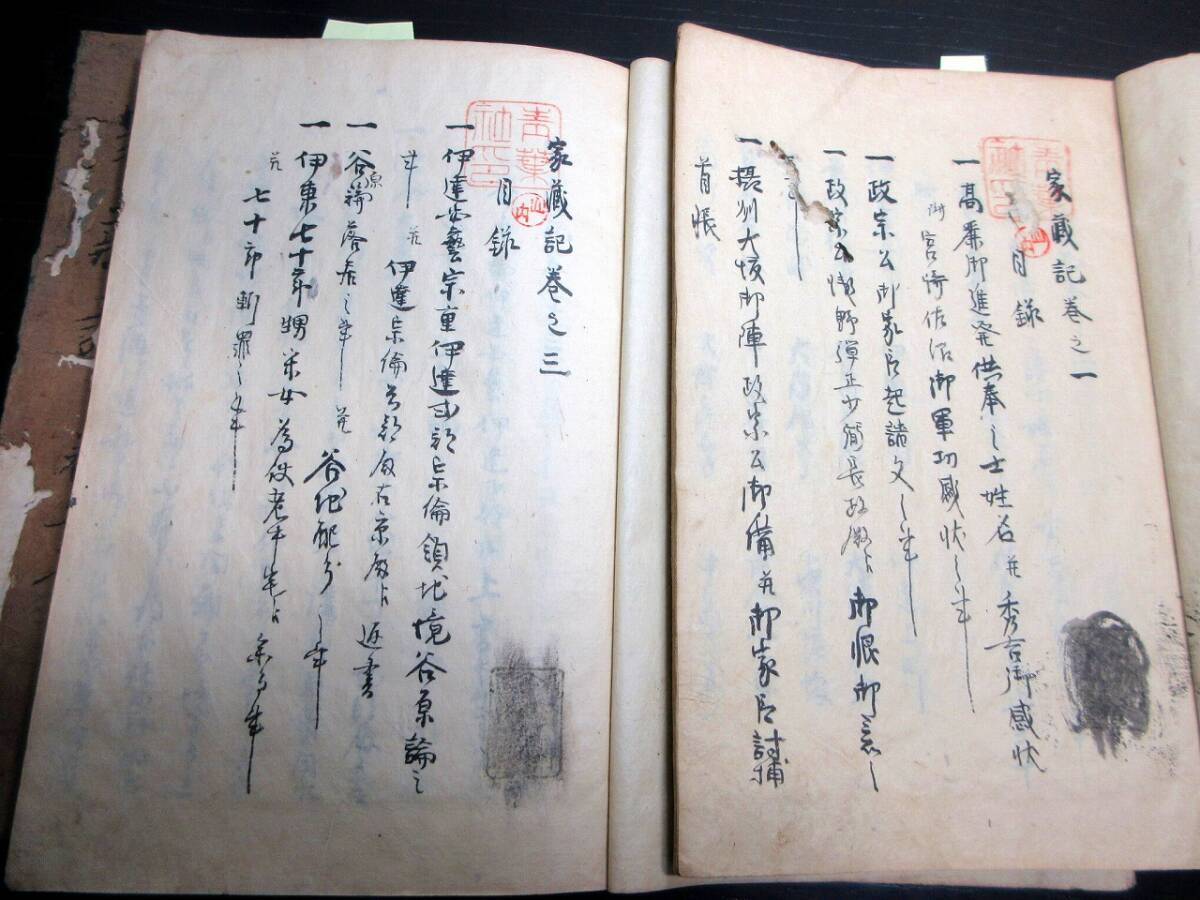 家蔵記巻之一
目録
一高麗御進発供奉之士姓名并秀吉御感状
附宮崎佐沼御軍功感状之事
一政宗公御家臣起請文之事
一政宗公浅野弾正少弼長政殿ト御恨御意之
事
一摂州大坂御陣政宗公御備并御家臣討捕
首帳
家蔵記巻之三
目録
一伊達安藝宗重伊達式部宗倫領地境谷原論之
事并伊達宗倫兵部殿右京殿ト返書
一谷原落居之事并谷地配分之事
一伊東七十郎甥采女為使老中
并七十郎斬罪之事
青葉